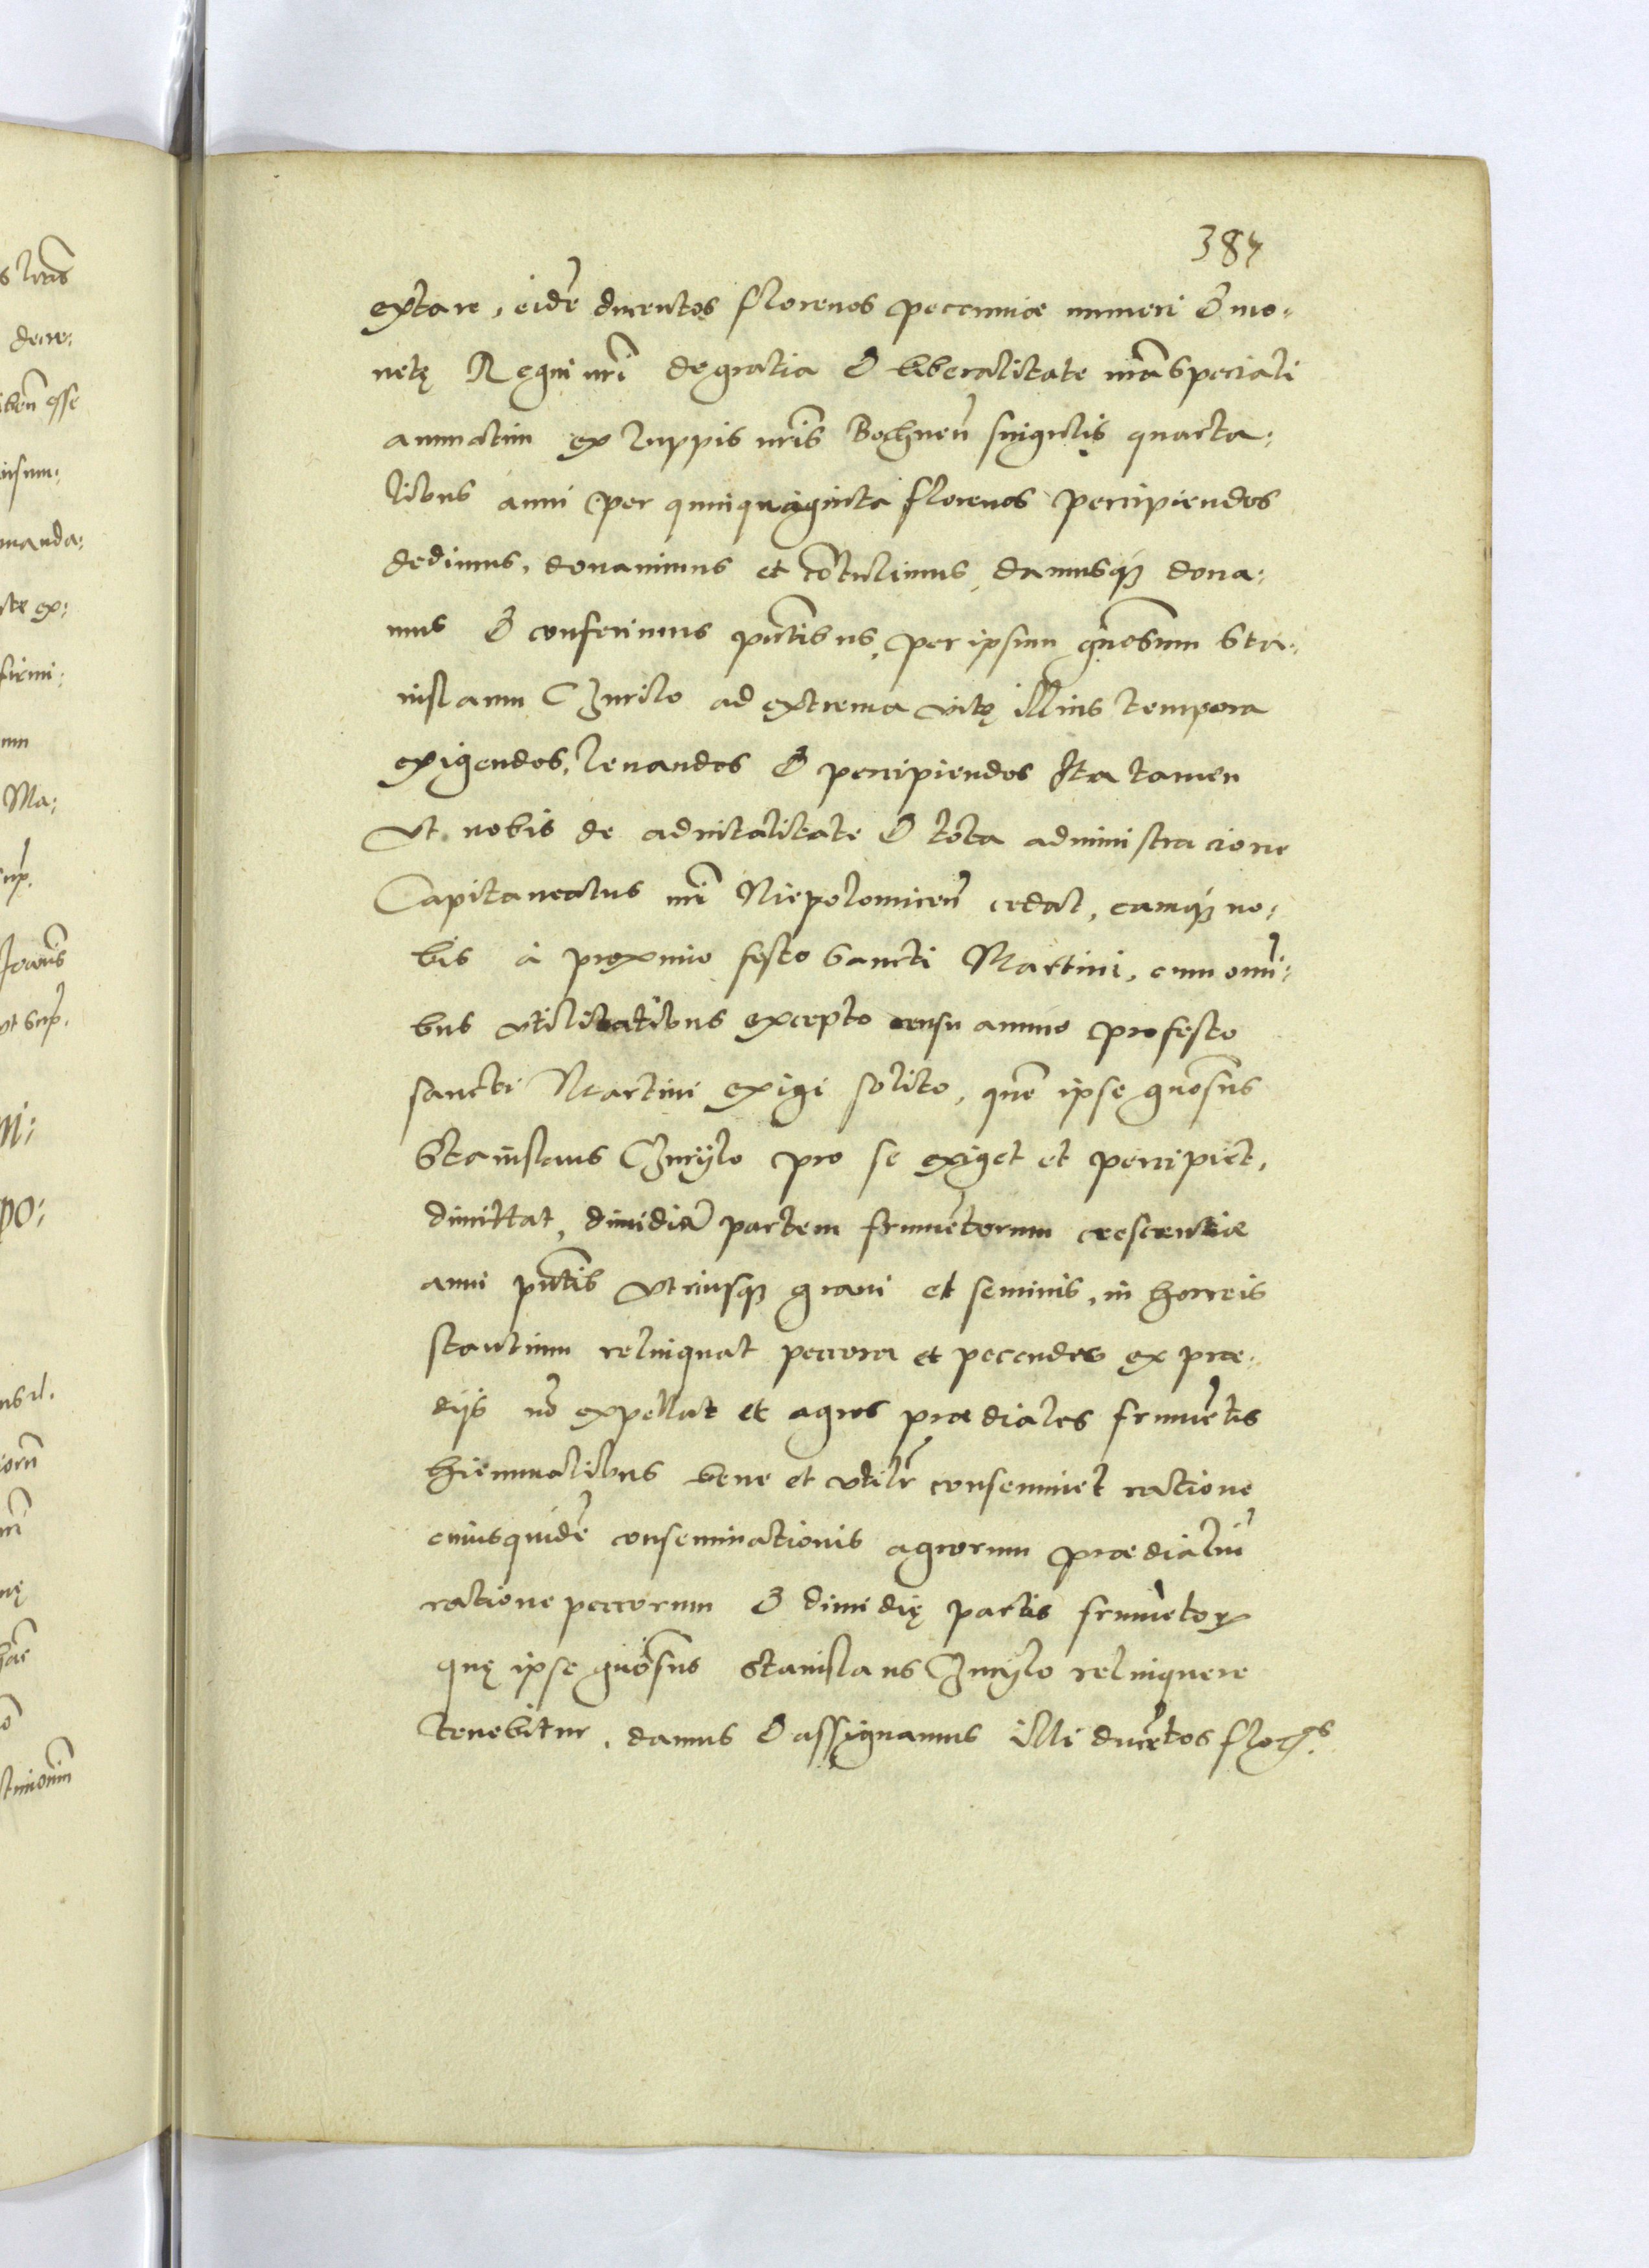 384
extare, eidē ducentos florenos pecuniæ numeri & mo:
netę Regni nr̄i de gratia & liberalitate nr̄a speciali
annuatim ex zuppis nr̄is Bochneñ singulis quarta:
libus anni per quinquaginta florenos percipiendos
dedimus, donavimus et cōtulimus, damusq; dona:
mus & conferimus p̄ntibus, per ipsum gn̄osum Sta:
nislaum Czurilo ad extrema vitę illius tempora
exigendos, levandos & percipiendos Ita tamen
Vt nobis de advitalitate & tota administracione
Capitaneatus nr̄i Niepolomiceñ cedat, eamq; no:
bis à proximo festo Sancti Martini, cum omni:
bus vtilitatibus excepto censu annuo pro festo
sancti Martini exigi solito, quē ipse gn̄osus
Stanislaus Czurylo pro se exiget et percipiet,
dimittat, dimidiā partem frumētorum crescentiæ
anni p̄ntis vtriusq; grani et seminis, in horreis
stantium relinquat pecora et pecudes ex præ:
dijs nō expellat et agros prædiales frumētis
hiemmalibus bene et vtilr̄ conseminet ratione
cuiusquidē conseminationis agrorum prædialiū
ratione pecorum & dimidię partis frumētoꝝ
quę ipse gn̄osus Stanislaus Czurylo relinquere
tenebitur, damus & assignamus illi ducētos flor̄os